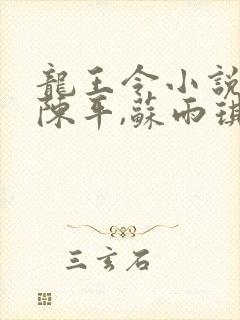 龍王令小說
陳平,蘇雨琪
三玄石